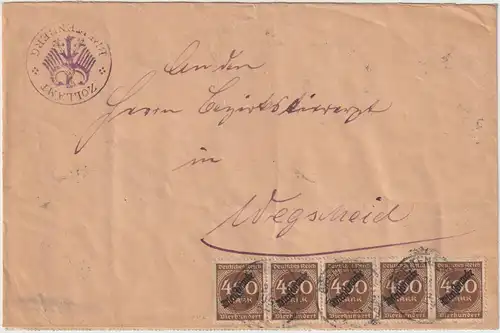 ZOLLAMT
An den
Herrn Bezirkstierarzt
in
Wegscheid
Deutsches Reich Deutsches Reich Deutsches Reich Deutsches Reich Deutsches Reich
400 400 400 400 400
MARK MARK MARK MARK MARK
Vierhundert Vierhundert Vierhundert Vierhundert Vierhundert